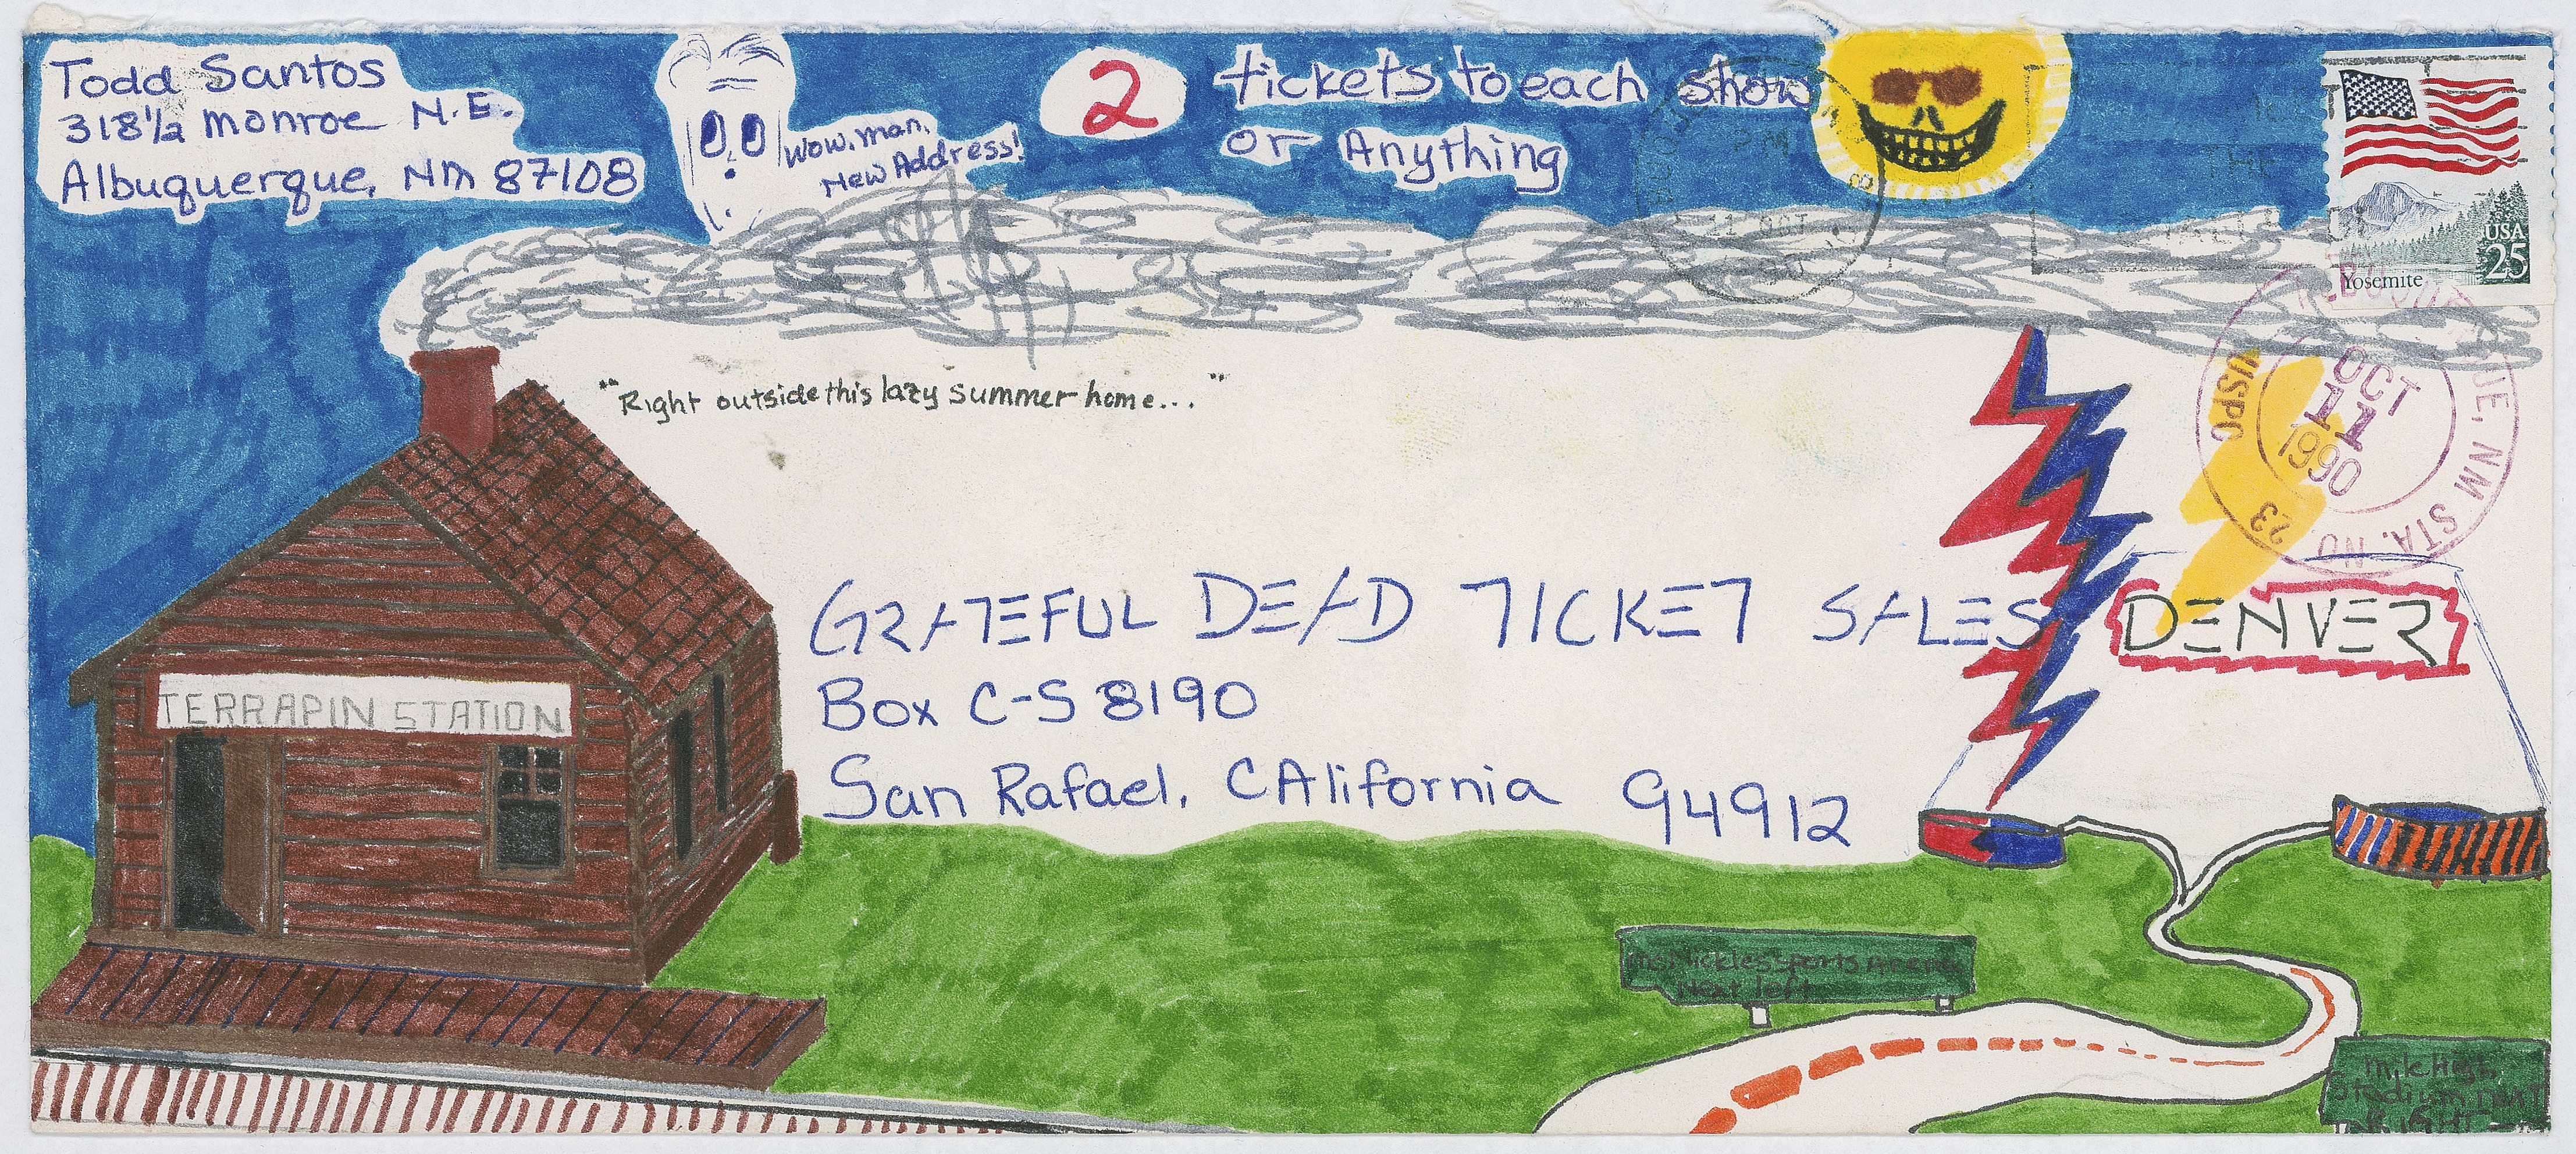 Todd Santos
318½ Monroe N.E.
Albuquerque, NM 87108
Wow, man,
New Address!
2 tickets to each show
or Anything
USA
25
Yosemite
11 OCT
PM
OCT
11
1990
USPO
NM STA. NO 23
"Right outside this lazy summer home..."
GRATEFUL DEAD TICKET SALES
DENVER
Box C-S 8190
San Rafael, CAlifornia 94912
TERRAPIN STATION
McNickles Sports Arena
Next left
Mile High
Stadium NEXT
RIGHT